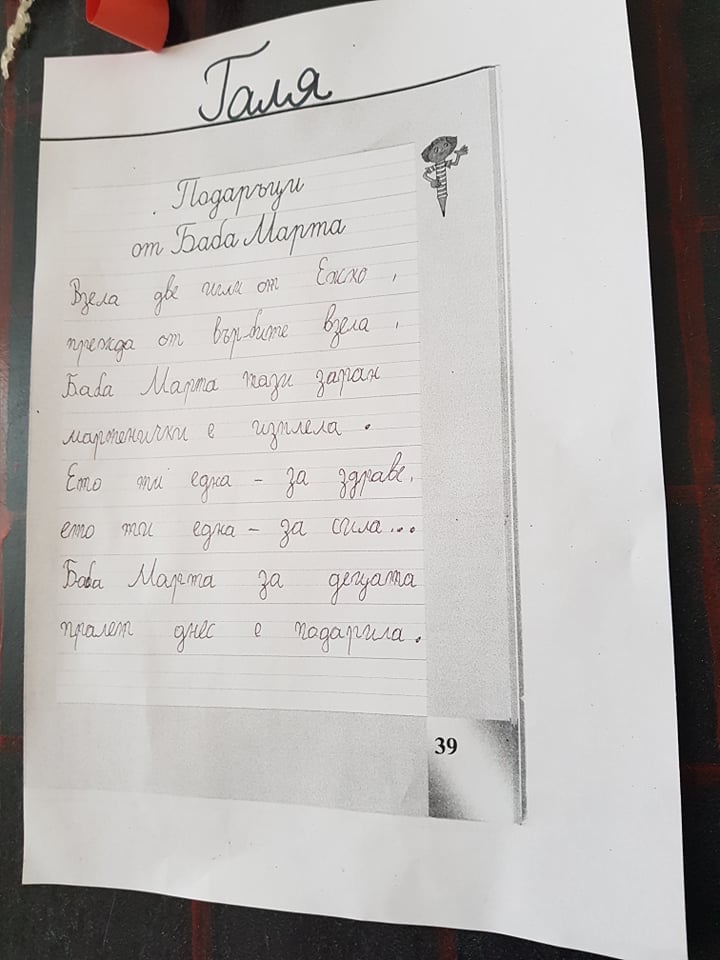 Галя
Подаръци
от Баба Марта
Взела две игли от Ежко,
прежда от върбите взела,
Баба Марта тази заран
мартенички е изплела.
Ето ти една - за здраве,
ето ти една - за сила...
Баба Марта за децата
пролет днес е подарила.
39